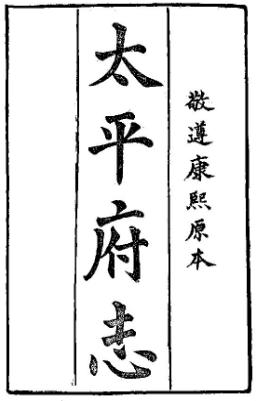 敬遵康熙原本
太平府志